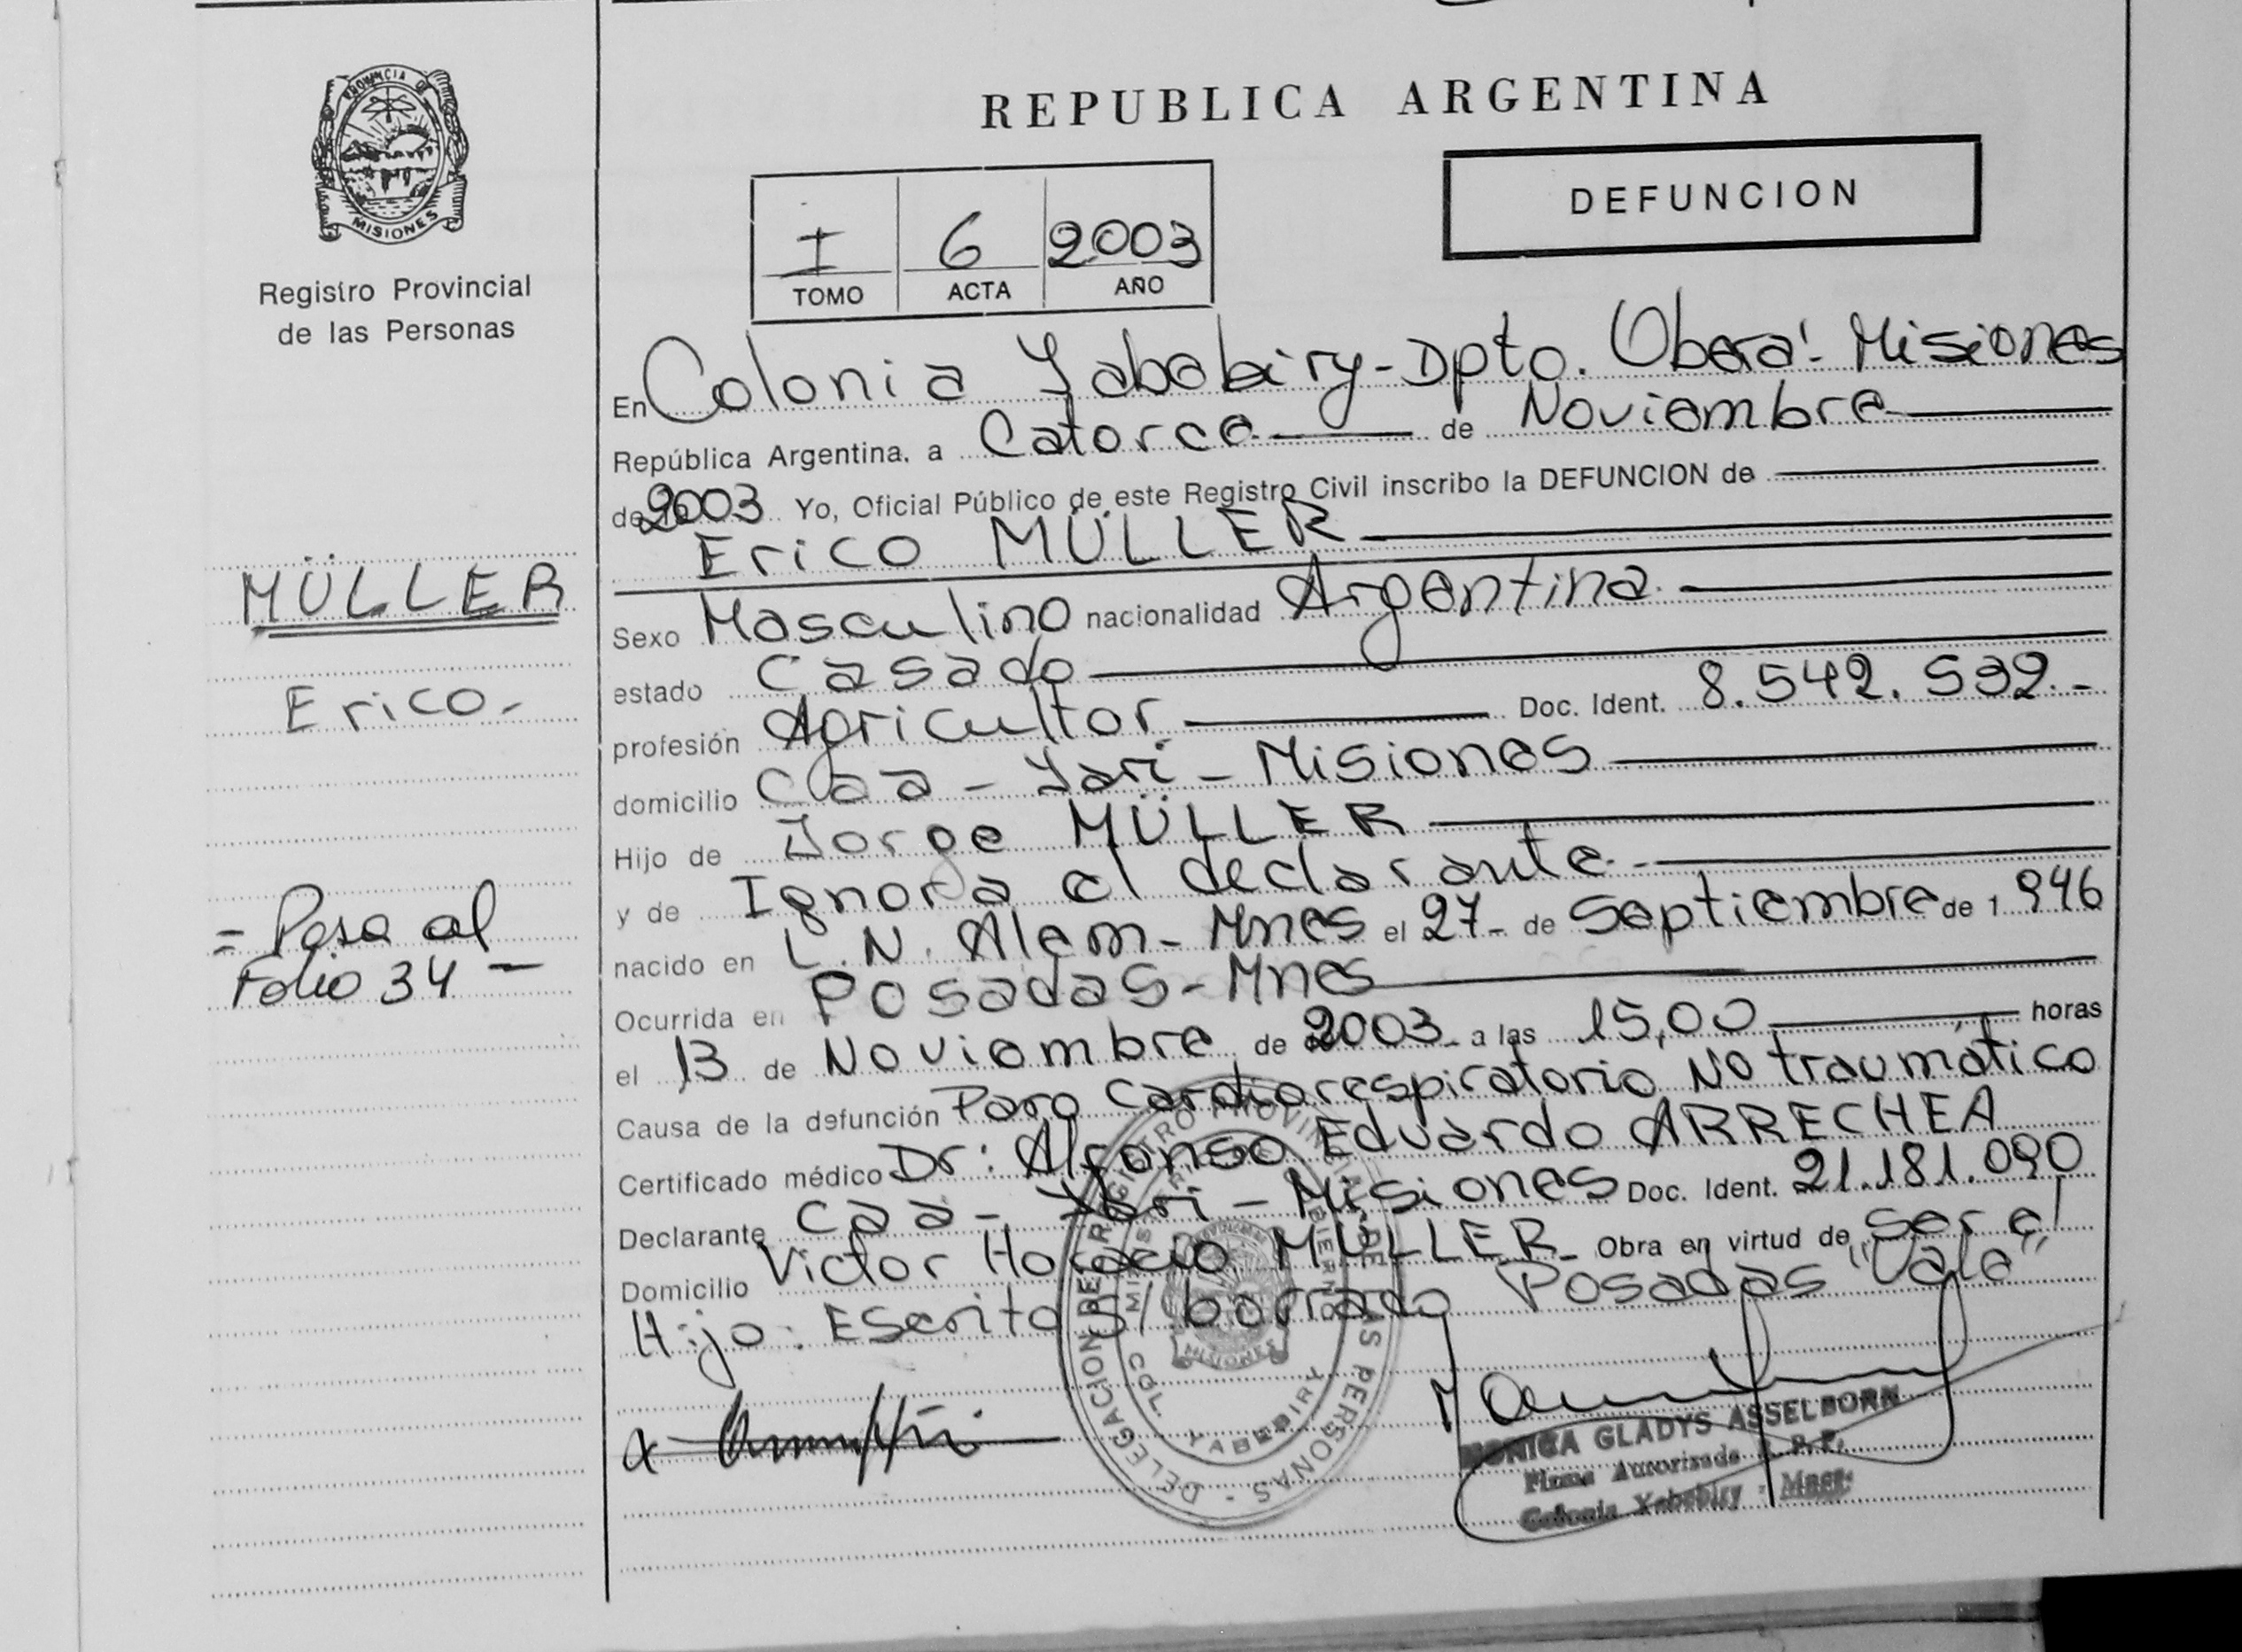 PROVINCIA DE
MISIONES
Registro Provincial
de las Personas
MÜLLER
Erico.-
= Pasa al
Folio 34 -
REPUBLICA ARGENTINA
DEFUNCION
I 6 2003
TOMO ACTA AÑO
En Colonia Yabebiry - Dpto. Oberá - Misiones
República Argentina, a Catorce de Noviembre
de 2003 Yo, Oficial Público de este Registro Civil inscribo la DEFUNCION de
Erico MÜLLER
Sexo Masculino nacionalidad Argentina
estado Casado
profesión Agricultor Doc. Ident. 8.542.532.-
domicilio Caa - Yari - Misiones
Hijo de Jorge MÜLLER
y de Ignora el declarante
nacido en L.N. Alem - Mnes el 27 - de Septiembre de 1 946
Ocurrida en Posadas - Mnes
el 13 de Noviembre de 2003 a las 15,00 horas
Causa de la defunción Paro Cardiorespiratorio No traumático
Certificado médico Dr: Alfonso Eduardo ARRECHEA
Declarante Caa - Yari - Misiones Doc. Ident. 21.181.090
Domicilio Victor Horacio MÜLLER - Obra en virtud de Ser el
Hijo: Escrito s/ borrado Posadas "Vale"
DELEGACION DE REGISTRO PROVINCIAL DE LAS PERSONAS -
COL. YABEBIRY
MISIONES
MONICA GLADYS ASSELBORN
Firma Autorizada R. P. P.
Colonia Yabebiry - Mnes.